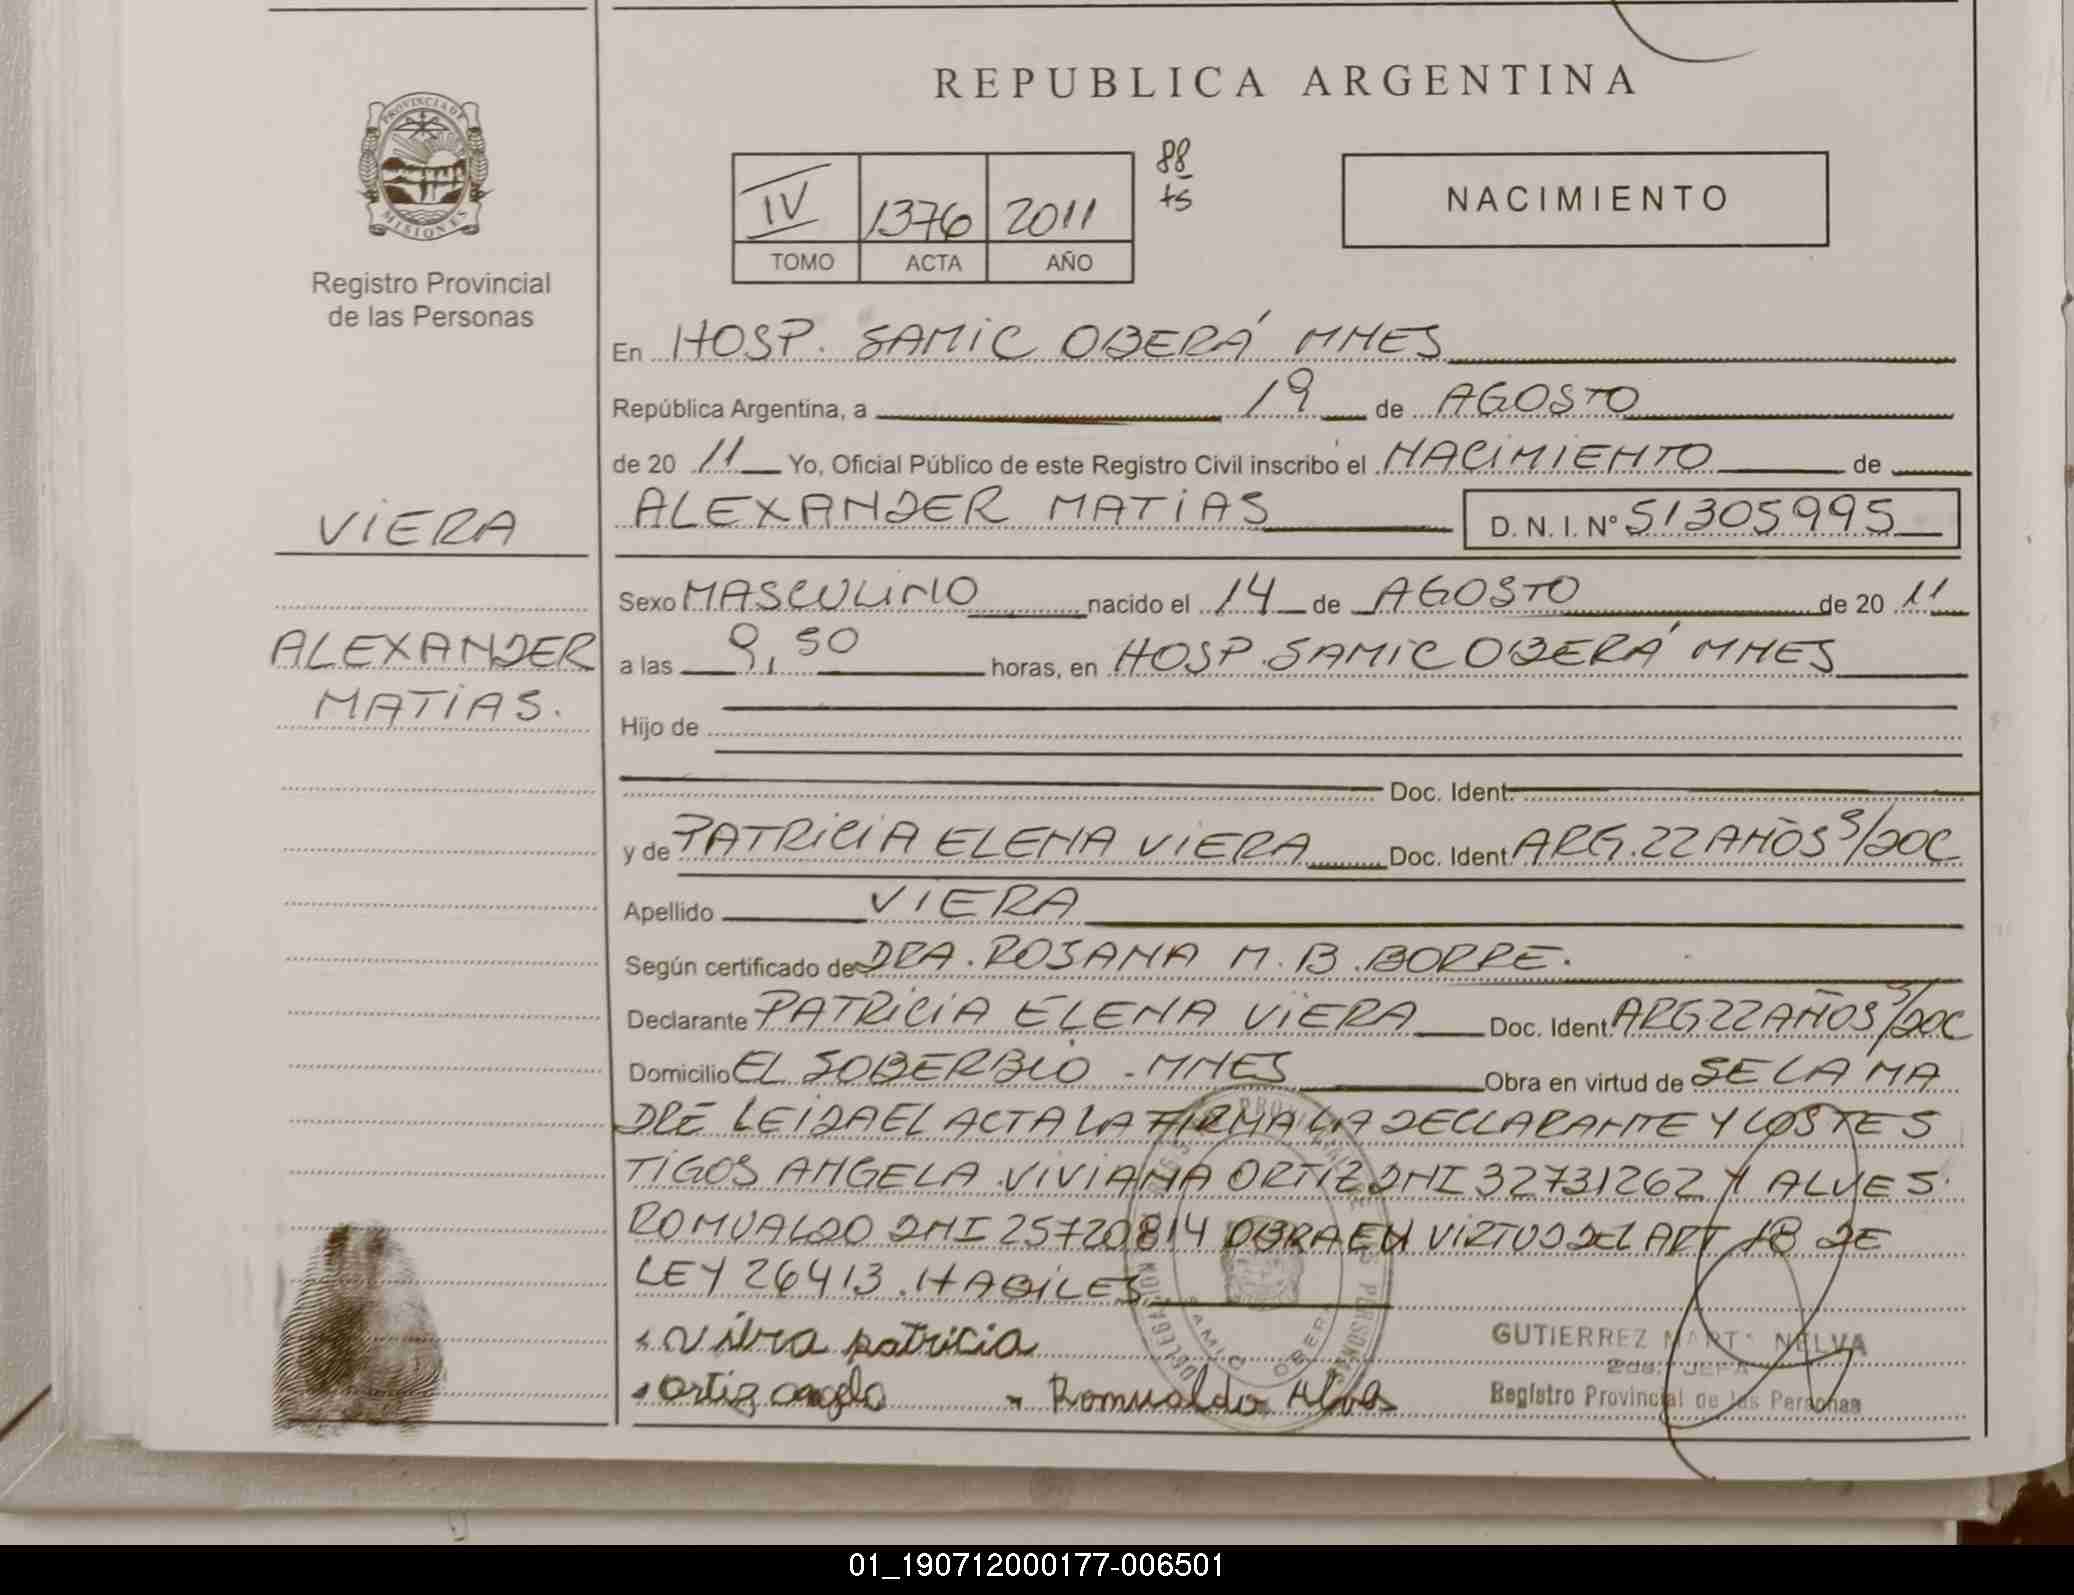 REPUBLICA ARGENTINA
PROVINCIA DE
MISIONES
Registro Provincial
de las Personas
IV 1376 2011
TOMO ACTA AÑO
88
ts
NACIMIENTO
En HOSP. SAMIC OBERÁ MNES
República Argentina, a 19 de AGOSTO
de 20 11 Yo, Oficial Público de este Registro Civil inscribo el NACIMIENTO de
VIERA
ALEXANDER MATIAS D. N. I. N° 51305995
Sexo MASCULINO nacido el 14 de AGOSTO de 20 11
ALEXANDER
MATIAS.
a las 9,50 horas, en HOSP. SAMIC OBERÁ MNES
Hijo de
Doc. Ident.
y de PATRICIA ELENA VIERA Doc. Ident ARG. 22 AÑOS S/DOC
Apellido VIERA
Según certificado de DRA. ROSANA M. B. BORRE.
Declarante PATRICIA ELENA VIERA Doc. Ident. ARG 22 AÑOS S/DOC
Domicilio EL SOBERBIO - MNES Obra en virtud de SE LA MA
DRE LEIDA EL ACTA LA FIRMA LA DECLARANTE Y LOS TES
TIGOS ANGELA VIVIANA ORTIZ DNI 32731262 Y ALVES
ROMUALDO DNI 25720814 OBRA EN VIRTUD DEL ART 18 DE
LEY 26413. HABILES
Viera patricia
ortiz angela Romualdo Alves
GUTIERREZ MARTA NELVA
2da. JEFA
Registro Provincial de las Personas
01_190712000177-006501